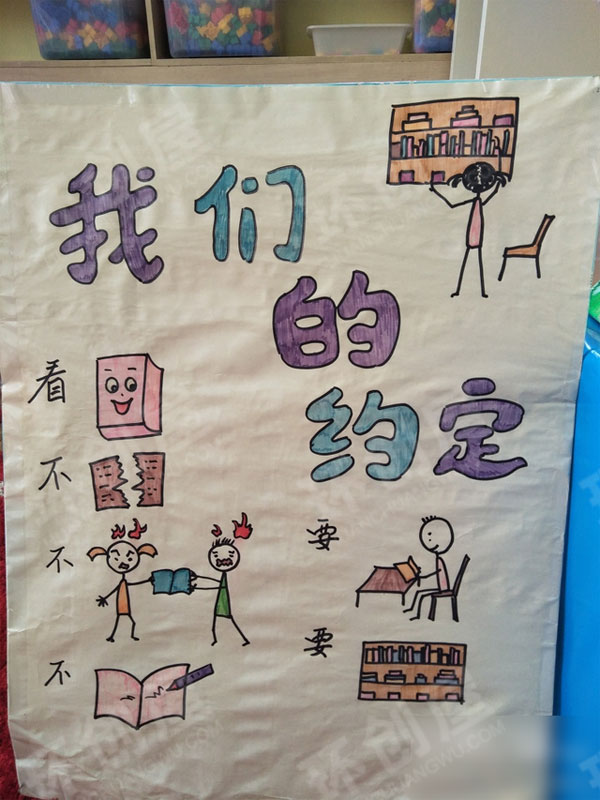 我们
的
约定
看
不
不
要
不
要